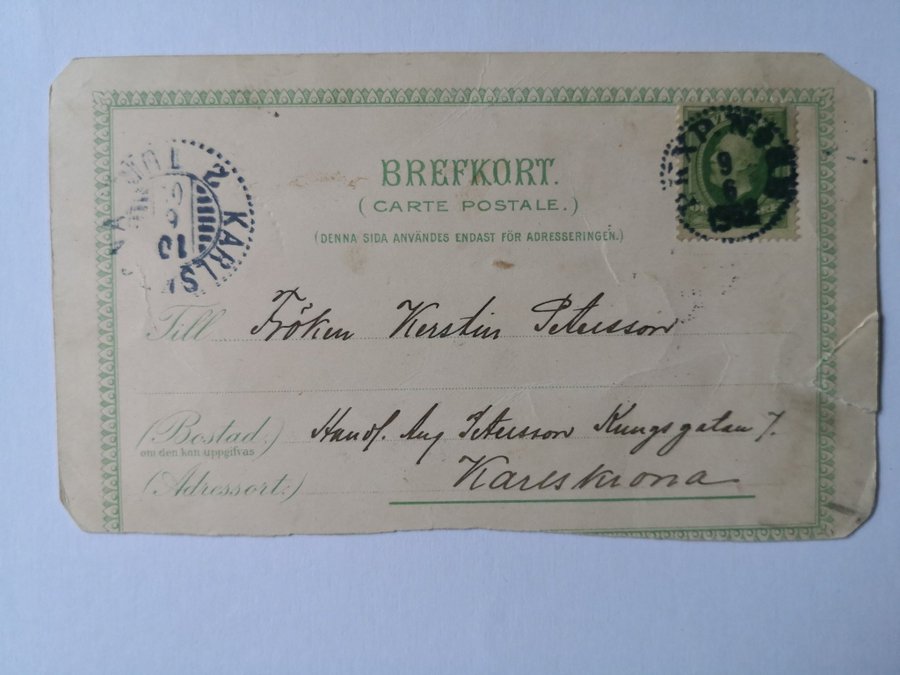 BREFKORT.
(CARTE POSTALE.)
(DENNA SIDA ANVÄNDES ENDAST FÖR ADRESSERINGEN.)
9
6
2 KARLSK
Till Fröken Kerstin Petersson
(Bostad:) Handl. Aug Petersson Kungsgatan 7.
om den kan uppgifvas
(Adressort:) Karlskrona